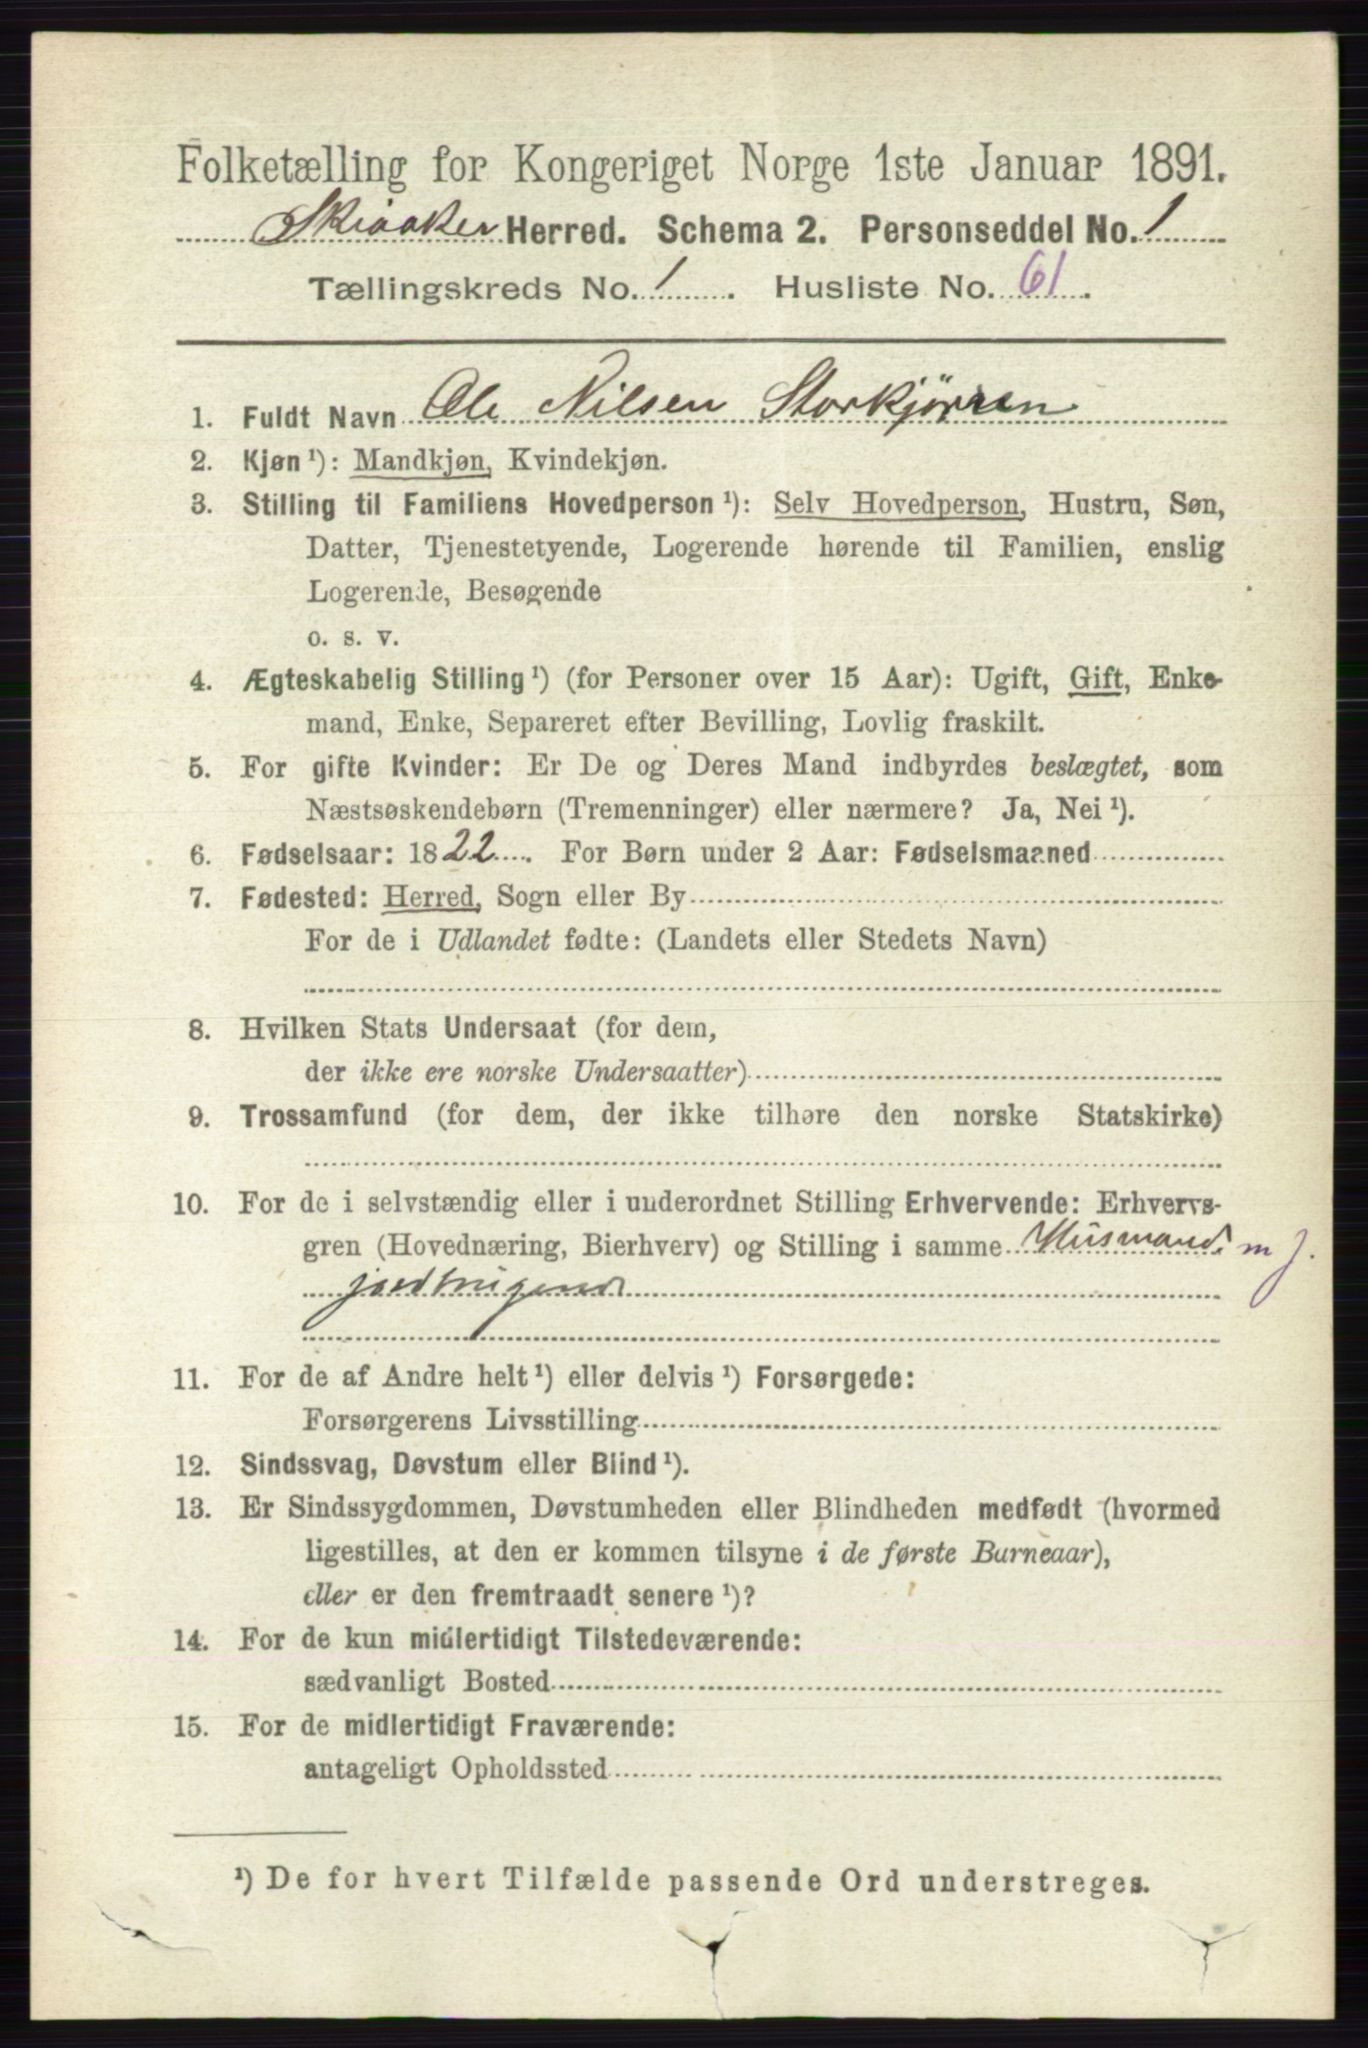 Folketælling for Kongeriget Norge 1ste Januar 1891.
Skiaaker Herred. Schema 2. Personseddel No. 1
Tællingskreds No. 1. Husliste No. 61.
1. Fuldt Navn Ole Nilsen Storkjørren
2. Kjøn ¹): Mandkjøn, Kvindekjøn.
3. Stilling til Familiens Hovedperson ¹): Selv Hovedperson, Hustru, Søn,
Datter, Tjenestetyende, Logerende hørende til Familien, enslig
Logerende, Besøgende
o. s. v.
4. Ægteskabelig Stilling ¹) (for Personer over 15 Aar): Ugift, Gift, Enke-
mand, Enke, Separeret efter Bevilling, Lovlig fraskilt.
5. For gifte Kvinder: Er De og Deres Mand indbyrdes beslægtet, som
Næstsøskendebørn (Tremenninger) eller nærmere? Ja, Nei ¹).
6. Fødselsaar: 1822. For Børn under 2 Aar: Fødselsmaaned
7. Fødested: Herred, Sogn eller By
For de i Udlandet fødte: (Landets eller Stedets Navn)
8. Hvilken Stats Undersaat (for dem,
der ikke ere norske Undersaatter)
9. Trossamfund (for dem, der ikke tilhøre den norske Statskirke)
10. For de i selvstændig eller i underordnet Stilling Erhvervende: Erhvervs-
gren (Hovednæring, Bierhverv) og Stilling i samme Husmand m j.
jordbrugende
11. For de af Andre helt ¹) eller delvis ¹) Forsørgede:
Forsørgerens Livsstilling
12. Sindssvag, Døvstum eller Blind ¹).
13. Er Sindssygdommen, Døvstumheden eller Blindheden medfødt (hvormed
ligestilles, at den er kommen tilsyne i de første Barneaar),
eller er den fremtraadt senere ¹)?
14. For de kun midlertidigt Tilstedeværende:
sædvanligt Bosted
15. For de midlertidigt Fraværende:
antageligt Opholdssted
¹) De for hvert Tilfælde passende Ord understreges.